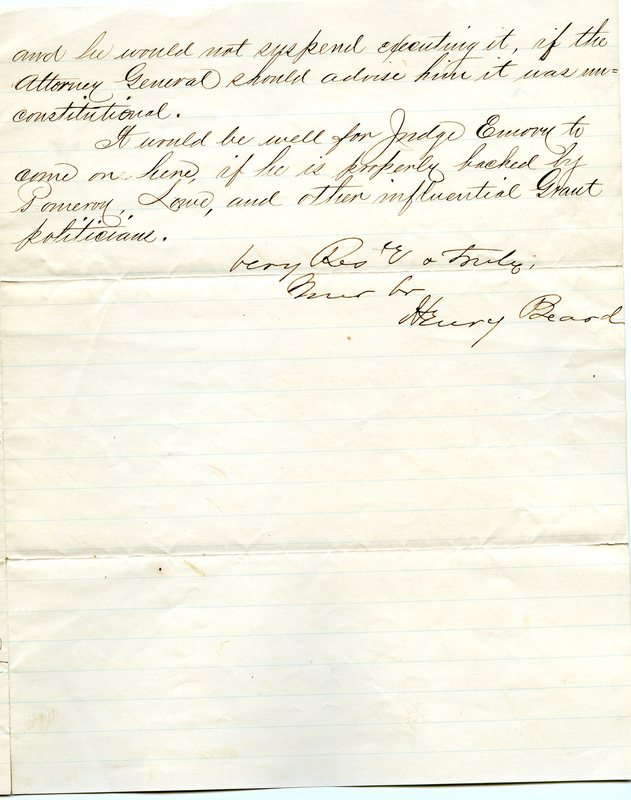 and he would not suspend executing it, if the
Attorney General should advise him it was un=
constitutional.
It would be well for Judge Emory to
come on here, if he is properly backed by
Pomeroy, Lowe, and other influential Grant
politicians.
Very Res'y & truly,
Your br
Henry Beard